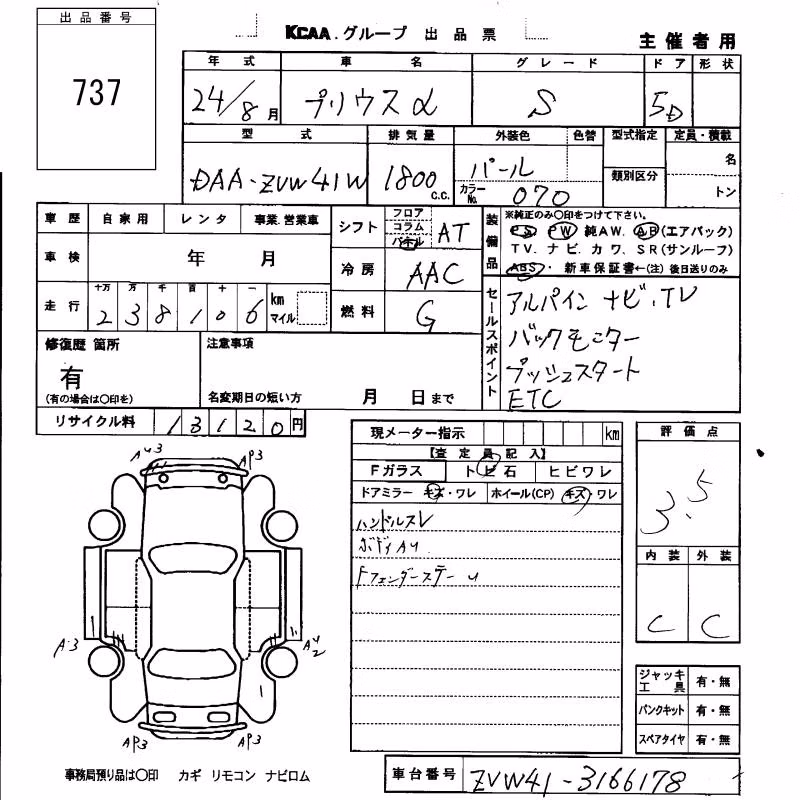 出品番号
737
KCAA.グループ 出品票
主催者用
年式 車名 グレード ドア 形状
24/8月 プリウスα S 5D
型式 排気量 外装色 色替 型式指定 定員・積載
DAA-ZVW41W 1800 c.c. パール 類別区分 名
カラーNo. 070 トン
車歴 自家用 レンタ 事業.営業車
シフト フロア コラム パネル AT
装備品 ※純正のみ〇印をつけて下さい。
PS PW 純AW. AB(エアバック)
TV. ナビ. カワ. SR(サンルーフ)
ABS・ 新車保証書←(注) 後日送りのみ
車検 年 月
冷房 AAC
走行 十万 万 千 百 十 一 km マイル
238106
燃料 G
セールスポイント
アルパイン ナビ.TV
バックモニター
プッシュスタート
ETC
修復歴 箇所
有
(有の場合は〇印を)
注意事項
名変期日の短い方 月 日まで
リサイクル料 13120円
現メーター指示 km
【査定員記入】
Fガラス トビ石 ヒビワレ
ドアミラー キズ・ワレ ホイール(CP) キズ・ワレ
ハンドルスレ
ボディAU
評価点
3.5
内装 外装
C C
AU3 AP3
A・3
AU2
AP3 AP3
ジャッキ工具 有・無
パンクキット 有・無
スペアタイヤ 有・無
事務局預り品は〇印 カギ リモコン ナビロム
車台番号 ZVW41-3166178